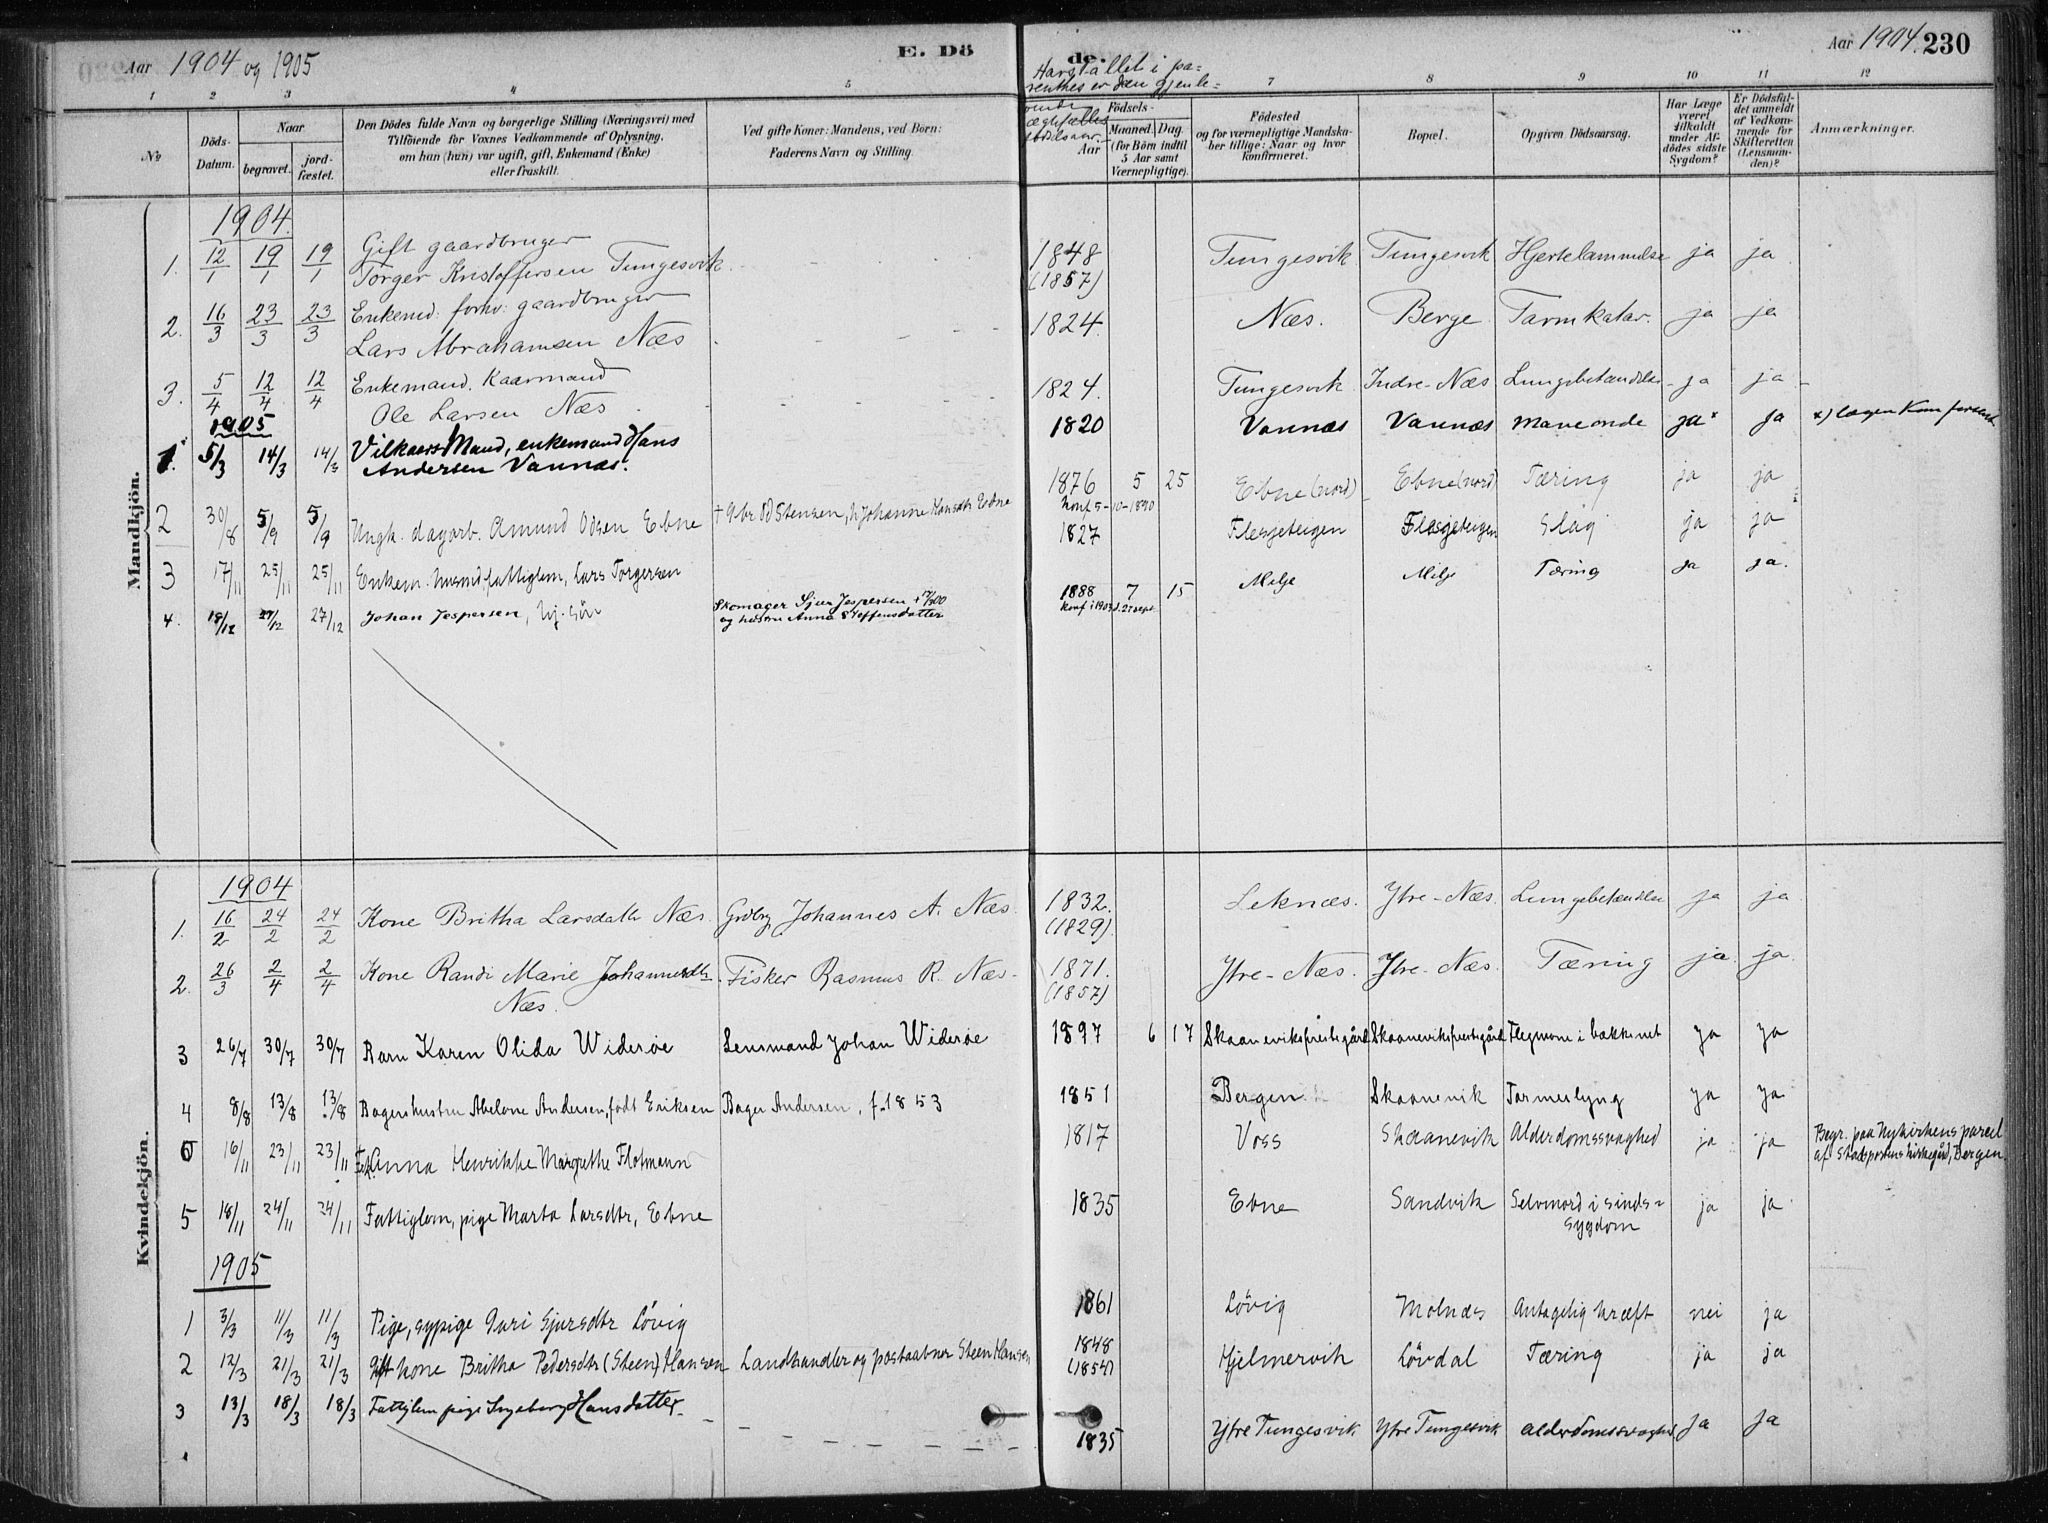 Aar 1904 og 1905
E. Dö
de.
Aar 1904. 230
Haarstallet i pa=
renthes er den gjenle=
vende
ægtefælles
fødselsaar.
1 2 3 4 5 7 8 9 10 11 12
No
Döds-
Datum.
Naar
begravet.
jord-
fæstet.
Den Dödes fulde Navn og borgerlige Stilling (Næringsvei) med
Tilföiende for Voxnes Vedkommende af Oplysning,
om han (hun) var ugift, gift, Enkemand (Enke)
eller fraskilt.
Ved gifte Koner: Mandens, ved Börn:
Faderens Navn og Stilling.
Födsels-
Aar
Maaned. Dag.
(for Börn indtil
5 Aar samt
Værnepligtige).
Födested
og for værnepligtige Mandska-
ber tillige: Naar og hvor
konfirmeret.
Bopæl.
Opgiven Dödsaarsag.
Har Læge
været
tilkaldt
under Af-
dödes sidste
Sygdom?
Er Dödsfal-
det anmeldt
af Vedkom-
mende for
Skifteretten
(Lensman-
den)?
Anmærkninger.
Mandkjön.
1904.
1. 12/1 19/1 19/1 Gift gaardbruger
Torger Kristoffersen Tungesvik. 1848 (1857) Tungesvik Tungesvik Hjertelammelse ja ja
2. 16/3 23/3 23/3 Enkemd. forhv: gaardbruger
Lars Abrahamsen Næs 1824. Næs. Berge Tarmkatar. ja ja
3. 5/4 12/4 12/4 Enkemand. Kaarmand
Ole Larsen Næs 1824. Tungesvik Indre-Næs Lungebetændelse ja ja
1905
1. 5/3 14/3 14/3 Vilkaars Mand, enkemand Hans
Andersen Vannæs. 1820 Vannæs Vannæs maveonde ja x ja x) lægen kom forsent
2 30/8 5/9 5/9 Ungk. dagarb. Amund Odsen Ebne † gbr Od Stensen, h Johanne Hansdtr Ebne 1876 5 25 Ebne (nord) Ebne (nord) Tæring ja ja
konf 5-10-1890
3 17/11 25/11 25/11 Enkem. husmd fattiglem, Lars Torgersen 1827 Flesjeteigen Flesjeteigen Slag ja ja
4. 18/12 27/12 27/12 Johan Jespersen, Skomager Sjur Jespersen †
og hustru Anna Steffensdatter 1888 7 15 Milje Milje Tæring ja ja.
konf i 1903 d. 27 sept.
Kvindekjön.
1904
1. 16/2 24/2 24/2 Kone Britha Larsdatter Næs. Grdbrg Johannes A. Næs. 1832. (1829). Leknæs. Ytre-Næs. Lungebetændelse ja ja
2. 26/3 2/4 2/4 Kone Randi Marie Johannesdtr.
Næs. Fisker Rasmus R. Næs. 1871. (1857) Ytre-Næs. Ytre-Næs. Tæring ja ja.
3 26/7 30/7 30/7 Barn Karen Olida Widerøe Lensmand Johan Widerøe 1897 6 17 Skaaneviksprestegård Skaaneviksprestegård Flegmone i bækkenet ja ja
4 8/8 13/8 13/8 Bagerhustru Abelone Andersen, født Eriksen Bager Andersen, f. 1853 1851 Bergen Skaanevik Tarmeslyng ja ja
6 16/11 23/11 23/11 Frk. Anna Henrikke Margrethe Flotmann 1817 Voss Skaanevik Alderdomssvaghed ja ja Begr. paa Nykirkens parcel
af Stadsportens kirkegård, Bergen.
5 18/11 24/11 24/11 Fattiglem, pige Marta Larsdtr, Ebne 1835 Ebne Sandvik Selvmord i sinds=
sygdom ja ja
1905
1 3/3 11/3 11/3 Pige, sypige Guri Sjursdtr Løvig 1861 Løvig Molnæs Antagelig kræft nei ja
2 12/3 21/3 21/3 Gift kone Britha Pedersdtr (Steen) Hansen Landhandler og postaabner Steen Hansen 1848 (1854) Hjelmervik Løvdal Tæring ja ja
3 13/3 18/3 18/3 Fattiglem pige Ingeborg Hansdatter 1835 Ytre Tungesvik Ytre Tungesvik Alderdomssvaghed ja ja